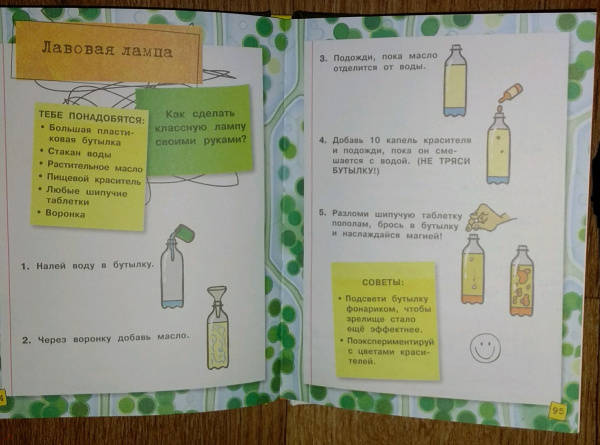 Лавовая лампа
Как сделать
классную лампу
своими руками?
ТЕБЕ ПОНАДОБЯТСЯ:
• Большая пласти-
ковая бутылка
• Стакан воды
• Растительное масло
• Пищевой краситель
• Любые шипучие
таблетки
• Воронка
1. Налей воду в бутылку.
2. Через воронку добавь масло.
3. Подожди, пока масло
отделится от воды.
4. Добавь 10 капель красителя
и подожди, пока он сме-
шается с водой. (НЕ ТРЯСИ
БУТЫЛКУ!)
5. Разломи шипучую таблетку
пополам, брось в бутылку
и наслаждайся магией!
СОВЕТЫ:
• Подсвети бутылку
фонариком, чтобы
зрелище стало
ещё эффектнее.
• Поэкспериментируй
с цветами краси-
телей.
95